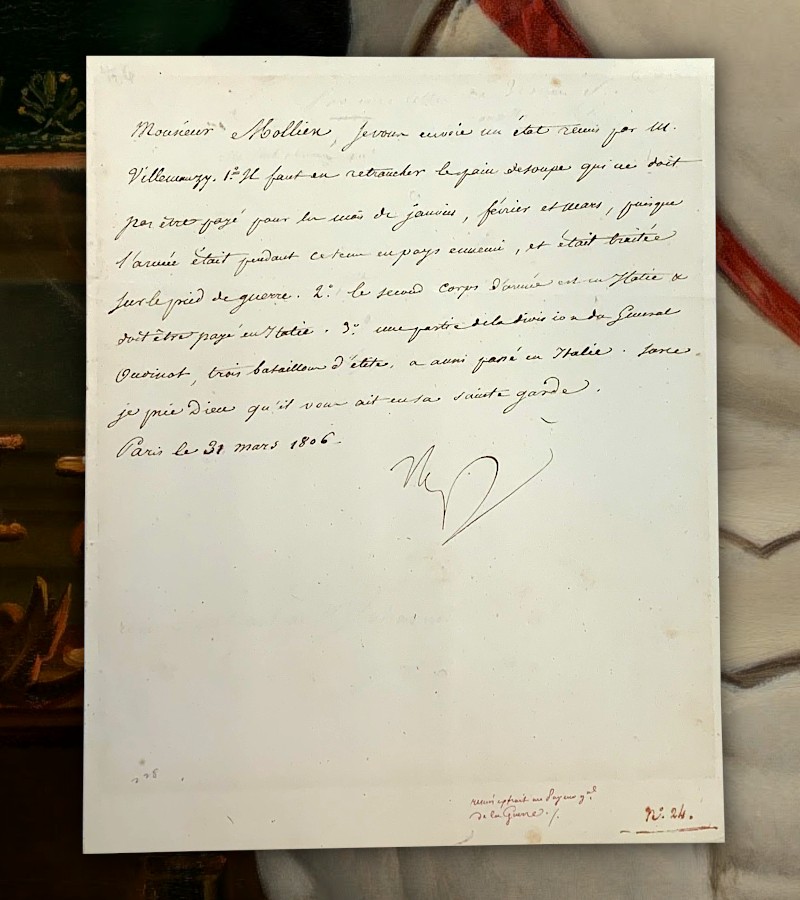 Monsieur Mollien, Je vous envoie un état remis par M.
Villemanzy. 1.º Il faut en retrancher le pain de soupe qui ne doit
pas être payé pour les mois de janvier, février et mars, puisque
l'armée était pendant ce tems en pays ennemi, et était traitée
sur le pied de guerre. 2.º le second corps d'armée est en Italie &
doit être payé en Italie. 3.º une partie de la division du Général
Oudinot, trois bataillons d'élite, a aussi passé en Italie. Sur ce
je prie Dieu qu'il vous ait en sa sainte garde.
Paris le 31 mars 1806.
Np
extrait au Payeur g.al
de la Guerre./.
N.º 24.